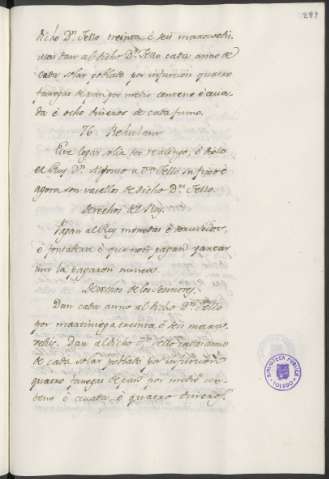 281
dicho Dn. Tello treinta é seis maravedis,
mas dan al dicho Dn. Tello cada anno de
cada solar poblado por infurcion quatro
fanegas de pan por medio centeno é ceva
da é ocho dineros de cada fumo.
76
Este logar solia ser realengo, é diolo
el Rey Dn. Alfonso a Dn. Tello su fijo é
agora son vasallos de dicho Dn. Tello.
Derechos del Rey.
Pagan al Rey monedas é servicios,
é fonsadera é que non pagan yantar
nin la pagaron nunca.
Derechos de los Sennores.
Dan cada anno al dicho Dn. Tello
por martiniega treinta é seis marave
dis. Dan al dicho Dn. Tello cada anno
de cada solar poblado por infurcion
quatro fanegas de pan por medio cen
teno é cevada, é quatro dineros
BIBLIOTECA PUBLICA
TOLEDO